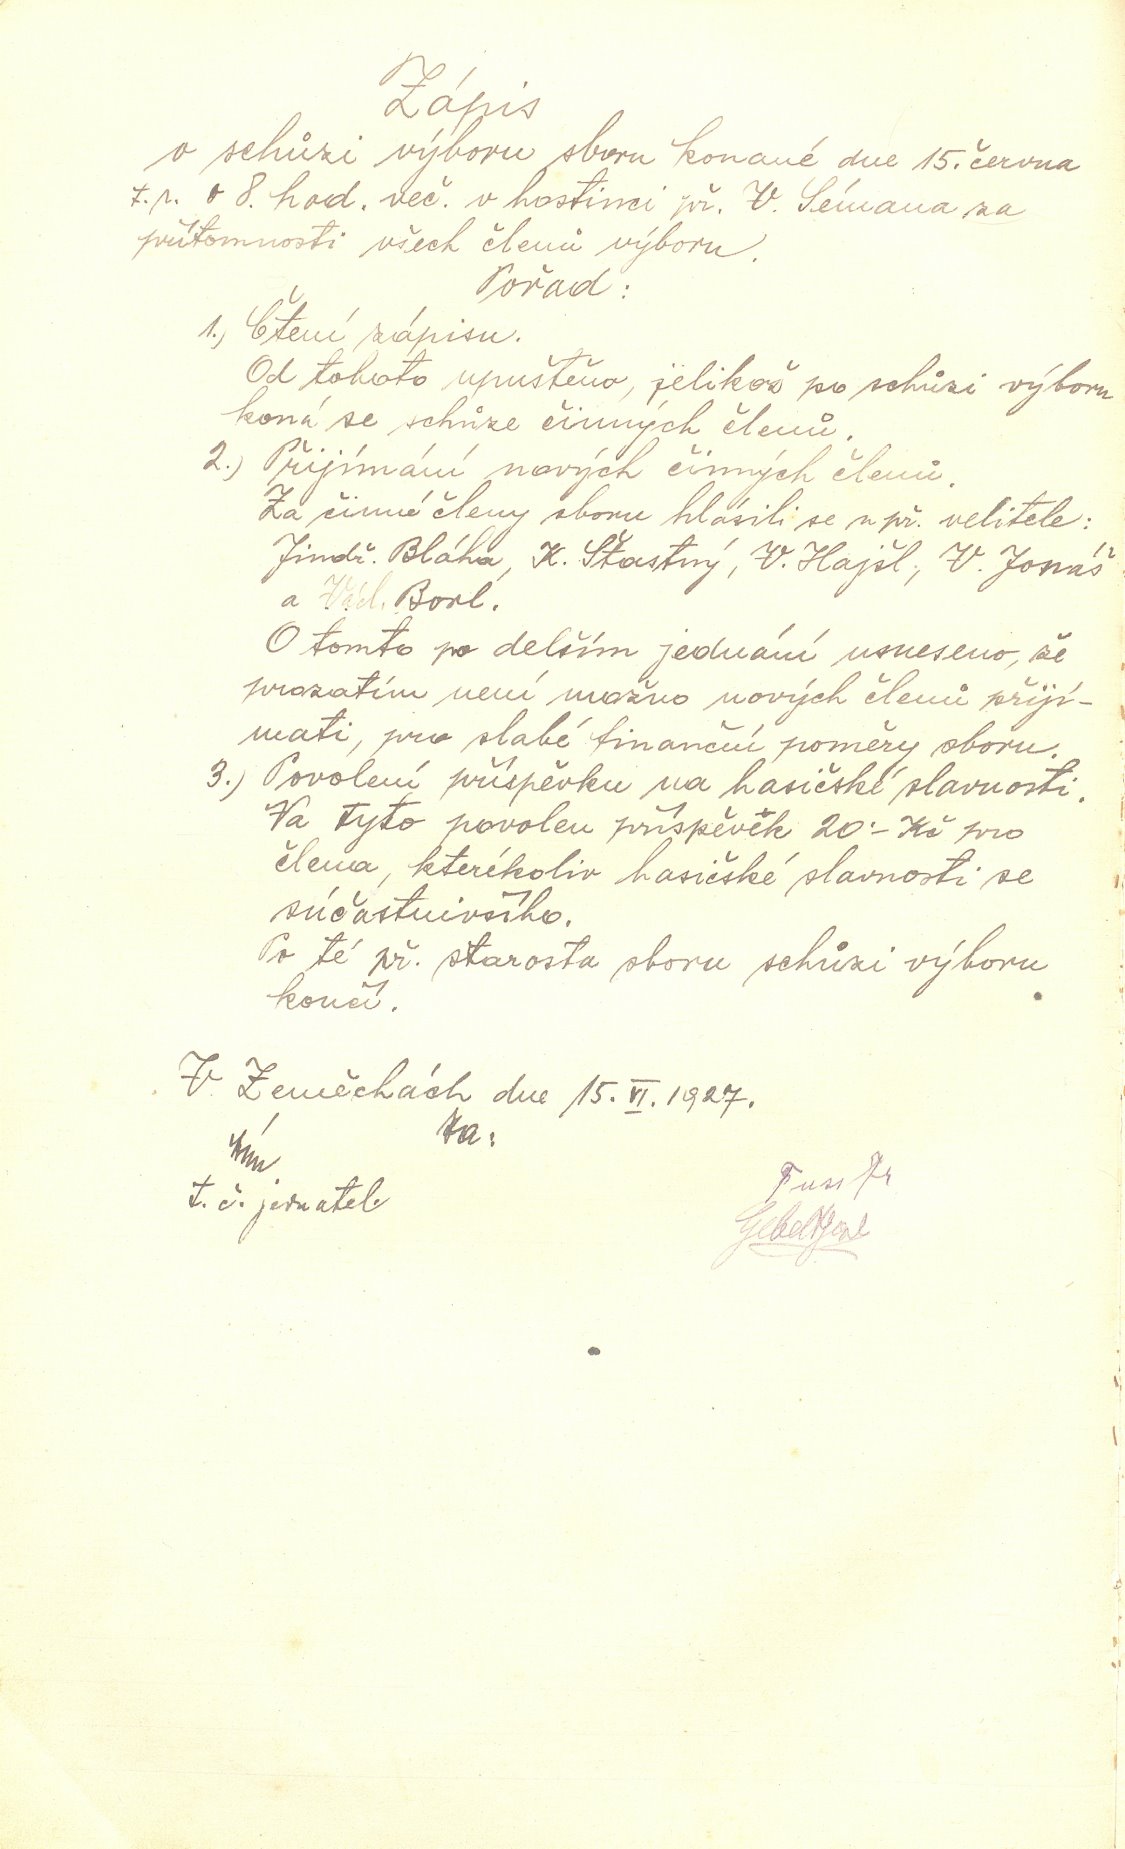 Zápis
o schůzi výboru sboru konané dne 15. června
t.r. o 8. hod. več. v hostinci př. V. Sémana za
přítomnosti všech členů výboru.
Pořad:
1.) Čtení zápisu.
Od tohoto upuštěno, jelikož po schůzi výboru
koná se schůze činných členů.
2.) Přijímání nových činných členů.
Za činné členy sboru hlásili se u př. velitele:
Jindř. Bláha, K. Šťastný, V. Hajšl, V. Jonáš
a Václ. Borl.
O tomto po delším jednání usneseno, že
prozatím není možno nových členů přijí-
mati, pro slabé finanční poměry sboru.
3.) Povolení příspěvku na hasičské slavnosti.
Na tyto povolen příspěvěk 20·– Kč pro
člena, kterékoliv hasičské slavnosti se
súčastnivšího.
Po té př. starosta sboru schůzi výboru
končí.
V Zeměchách dne 15. VI. 1927.
Za:
t. č. jednatel.